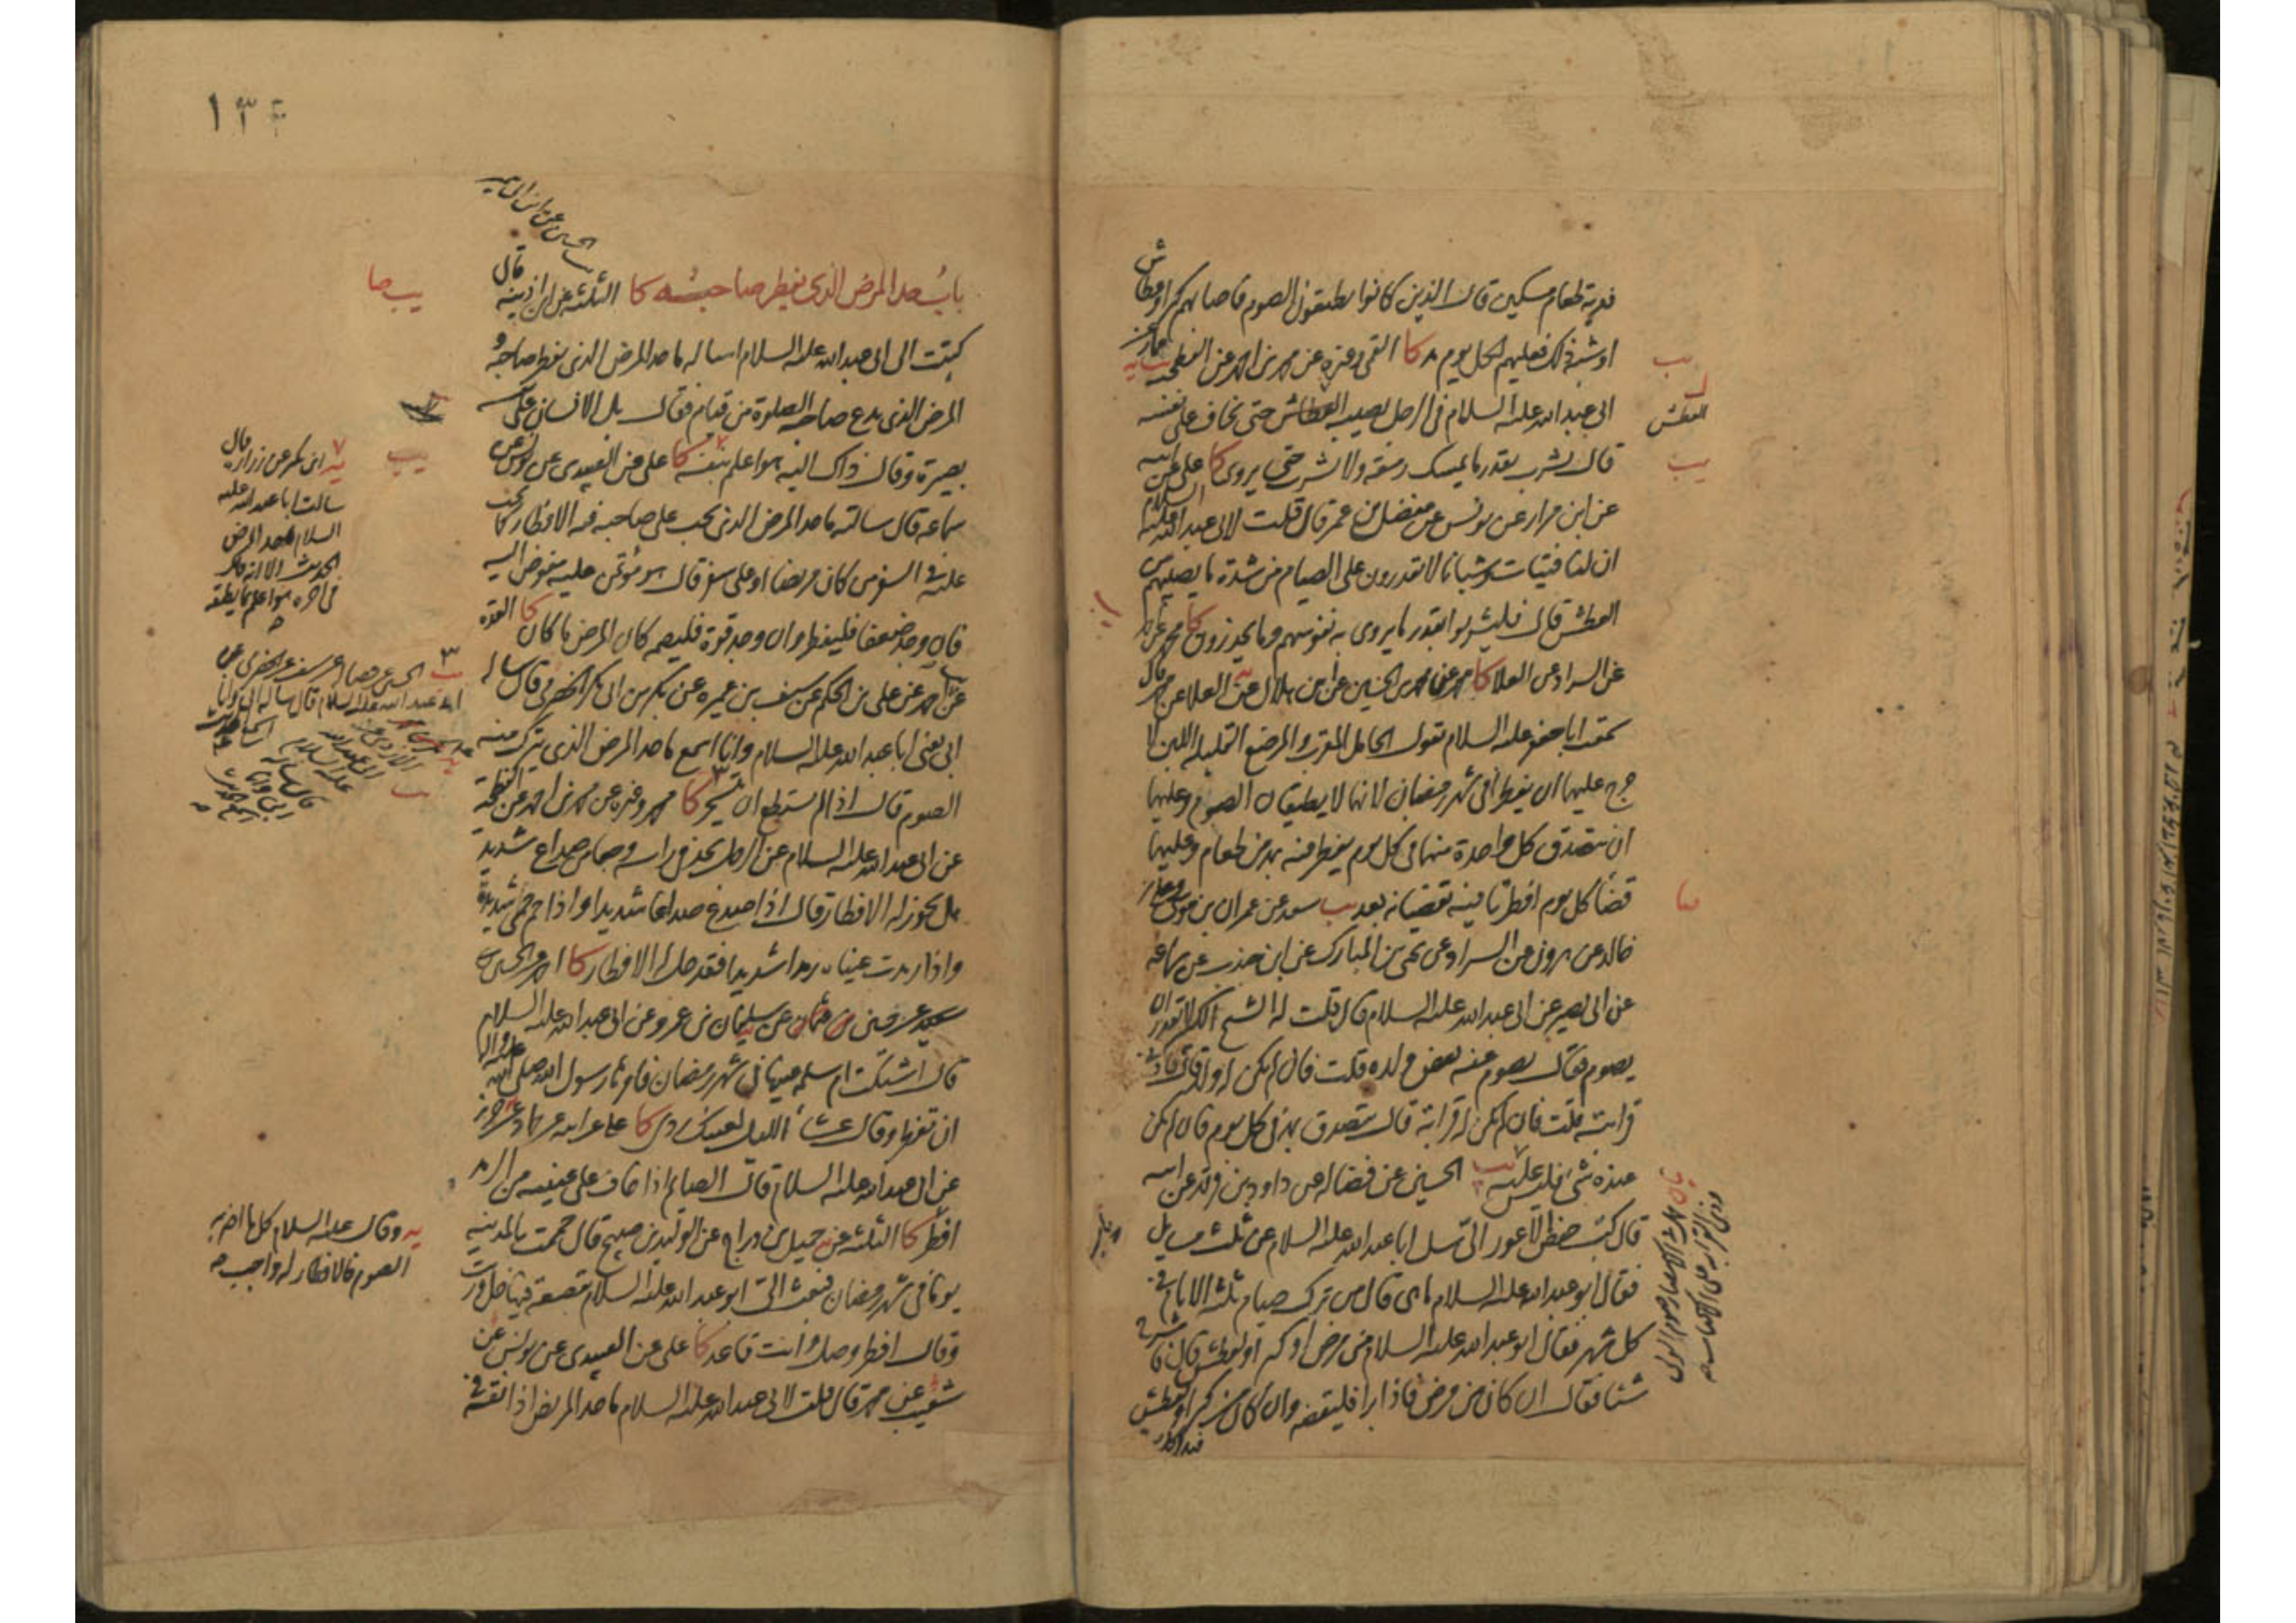 فدية طعام مسكين قال الذين كانوا يطيقون الصوم فاصابهم كبر او عطاش
او شبه ذلك فعليهم لكل يوم مد كا القمي وغيره عن محمد بن احمد عن الفطحية عن عمار عن
ابى عبد الله عليه السلام فى الرجل يصيبه العطاش حتى يخاف على نفسه
قال يشرب بقدر ما يمسك رمقه ولا يشرب حتى يروى كا على عن ابيه
عن ابن مرار عن يونس عن مفضل بن عمر قال قلت لابى عبد الله عليه السلام
ان لنا فتيات وشبانا لا يقدرون على الصيام من شدة ما يصيبهم من
العطش قال فليشربوا بقدر ما يروى به نفوسهم وما يحذرون كا محمد عن احمد
عن السراد عن العلا كا محمد عن محمد بن الحسين عن ابن هلال عن العلا عن محمد قال
سمعت ابا جعفر عليه السلام يقول الحامل المقرب والمرضع القليلة اللبن لا
حرج عليهما ان يفطرا فى شهر رمضان لانهما لا يطيقان الصوم وعليهما
ان يتصدق كل واحدة منهما فى كل يوم يفطر فيه بمد من طعام وعليهما
قضا كل يوم افطرتا فيه تقضيانه بعد يب سعد عن عمران بن موسى
خالد عن هرون عن السراد عن يحيى بن المبارك عن ابن جندب عن سماعة
عن ابى بصير عن ابى عبد الله عليه السلام قال قلت له الشيخ الكبير لا يقدر ان
يصوم فقال يصوم عنه بعض ولده قلت فان لم يكن له ولد قال فادنى
قرابته قلت فان لم يكن له قرابة قال يتصدق بمد فى كل يوم فان لم يكن
عنده شى فليس عليه يب الحسين عن فضالة عن داود بن فرقد عن ابيه
قال كتب حفص الاعور الى سل ابا عبد الله عليه السلام عن ثلث مسايل
فقال ابو عبد الله عليه السلام ما هى قال من ترك صيام ثلثة الايام فى
كل شهر فقال ابو عبد الله عليه السلام من مرض او كبر او لعطش قال فاشرح لى
شيئا فقال ان كان من مرض فاذا برا فليقضه وان كان من كبر او لعطش
فبدل كل
يب
العطش
يب
باب حد المرض الذى يفطر صاحبه كا الثلثة عن ابن اذينة قال
كتبت الى ابى عبد الله عليه السلام اساله ما حد المرض الذى يفطر صاحبه و
المرض الذى يدع صاحبه الصلوة من قيام فقال بل الانسان على نفسه
بصيرة وقال ذاك اليه هو اعلم بنفسه كا على عن العبيدى عن يونس عن
سماعة قال سالته ما حد المرض الذى يجب على صاحبه فيه الافطار كما يجب
عليه فى السفر من كان مريضا او على سفر قال هو مؤتمن عليه مفوض اليه
فان وجد ضعفا فليفطر وان وجد قوة فليصمه كان المرض ما كان كا العدة
عن احمد عن على بن الحكم عن سيف بن عميرة عن بكر بن ابى بكر الحضرمى قال ساله
ابى يعنى ابا عبد الله عليه السلام وانا اسمع ما حد المرض الذى يترك منه
الصوم قال اذا لم يستطع ان يتسحر كا محمد وغيره عن محمد بن احمد عن الفطحية
عن ابى عبد الله عليه السلام عن الرجل يجد فى راسه وجعا من صداع شديد
هل يجوز له الافطار قال اذا صدع صداعا شديدا واذا حم حمى شديدة
واذا رمدت عيناه رمدا شديدا فقد حل له الافطار كا احمد عن الحسين بن
سعيد عن حسين بن عثمان عن سليمان بن عمرو عن ابى عبد الله عليه السلام
قال اشتكت ام سلمة عينها فى شهر رمضان فامرها رسول الله صلى الله عليه واله
ان تفطر وقال عشاء الليل لعينك ردى كا على عن ابيه عن حماد عن حريز
عن ابى عبد الله عليه السلام قال الصايم اذا خاف على عينيه من الرمد
افطر كا الثلثة عن جميل بن دراج عن الوليد بن صبيح قال حممت بالمدينة
يوما فى شهر رمضان فبعث الى ابو عبد الله عليه السلام بقصعة فيها خل وزيت
وقال افطر وصل وانت قاعد كا على عن العبيدى عن يونس عن
شعيب عن محمد قال قلت لابى عبد الله عليه السلام ما حد المريض اذا نقه فى
يب صا
يب
يه ابن بكير عن زرارة قال
سالت ابا عبد الله عليه
السلام ما حد المرض
الحديث الا انه قال
فى اخره هو اعلم بما يطيقه
يه وقال عليه السلام كل ما اضر به
الصوم فالافطار له واجب